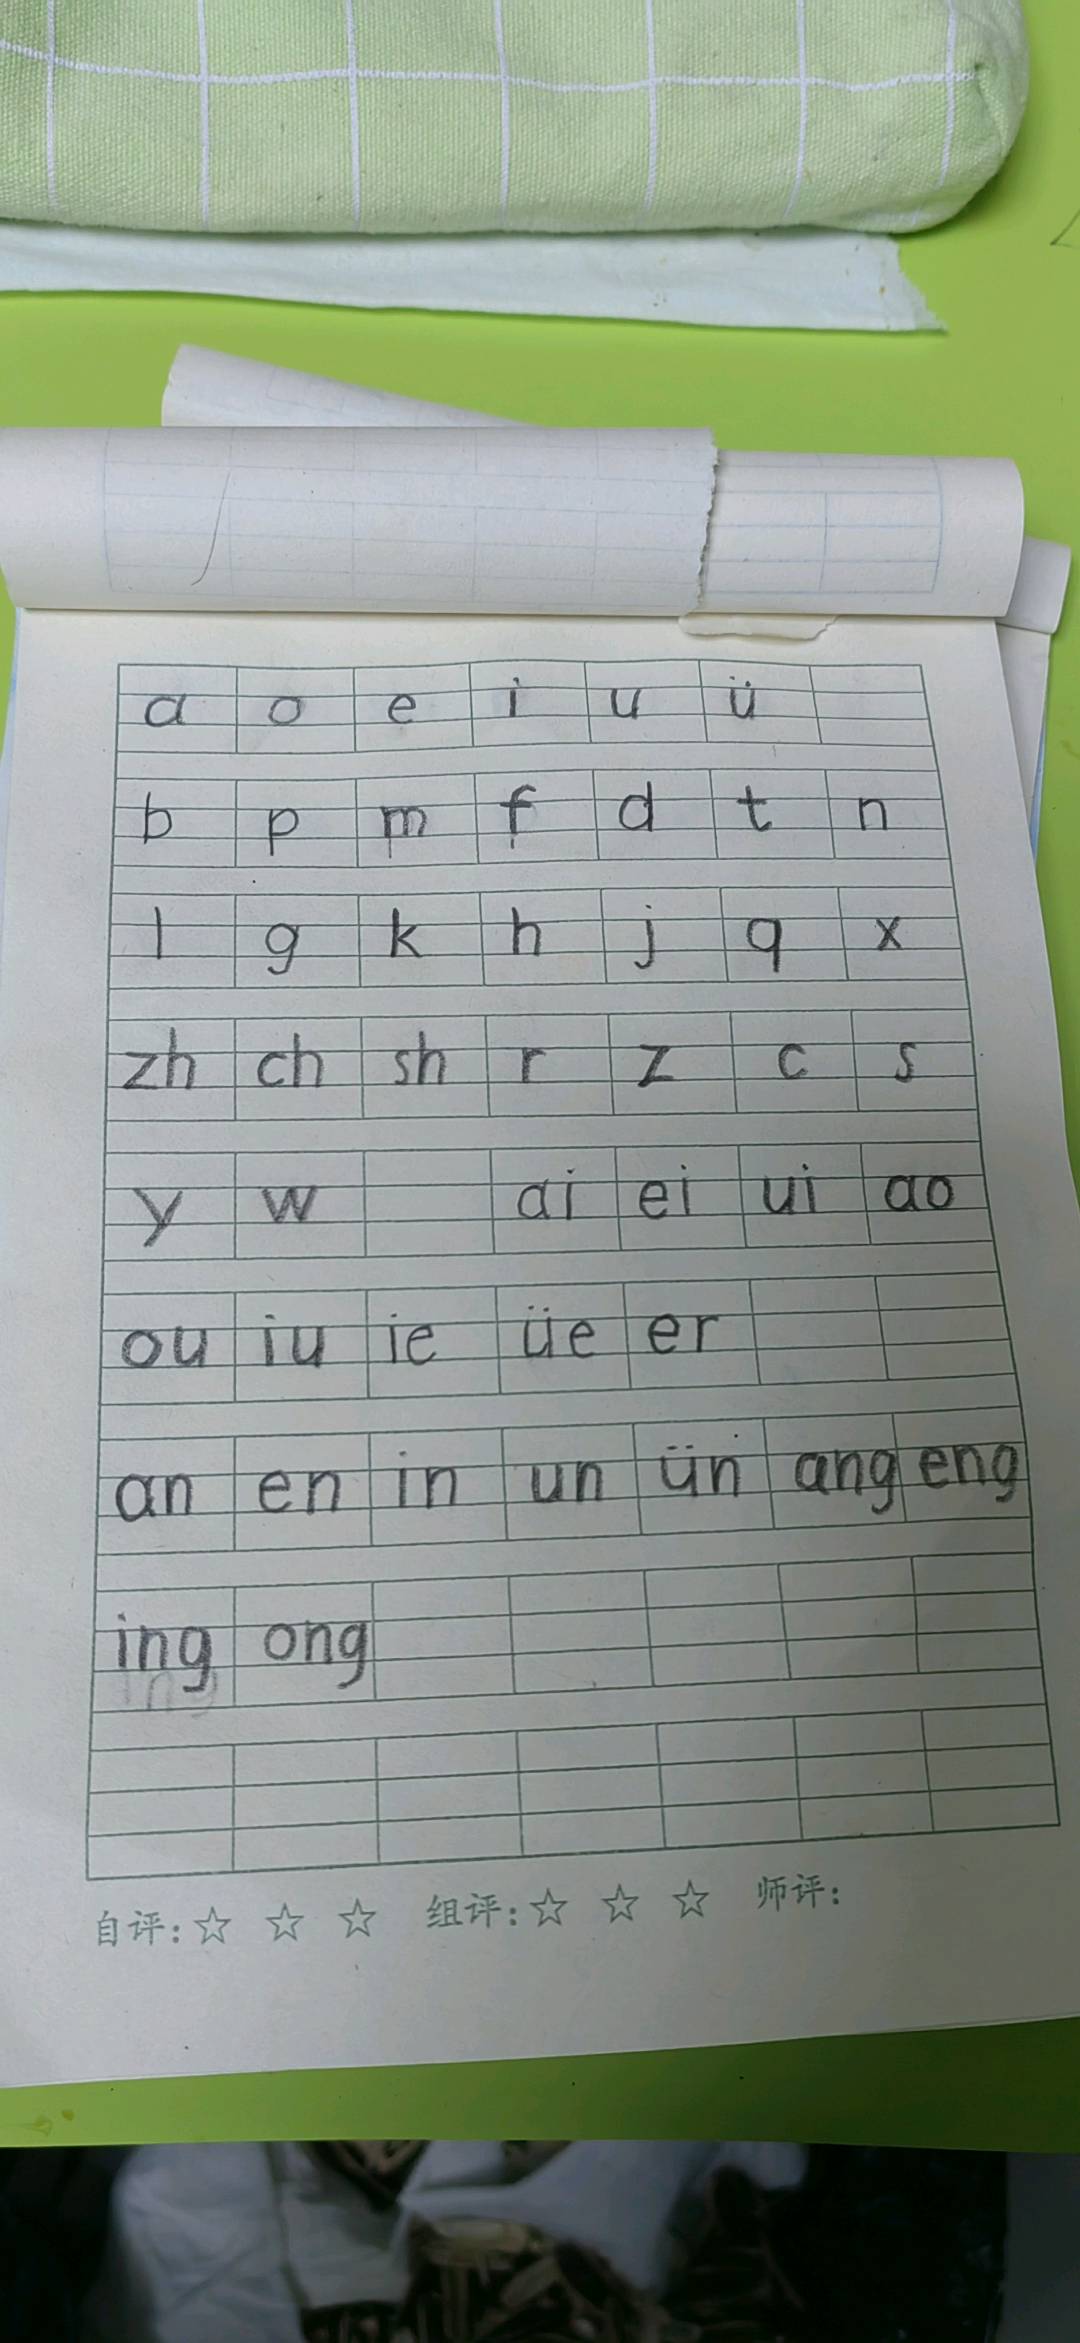 a o e i u ü
b p m f d t n
l g k h j q x
zh ch sh r z c s
y w ai ei ui ao
ou iu ie üe er
an en in un ün ang eng
ing ong
自评:☆ ☆ ☆ 组评:☆ ☆ ☆ 师评: